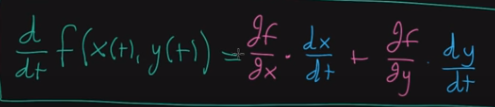 d/dt f(x(t), y(t)) = ∂f/∂x · dx/dt + ∂f/∂y · dy/dt